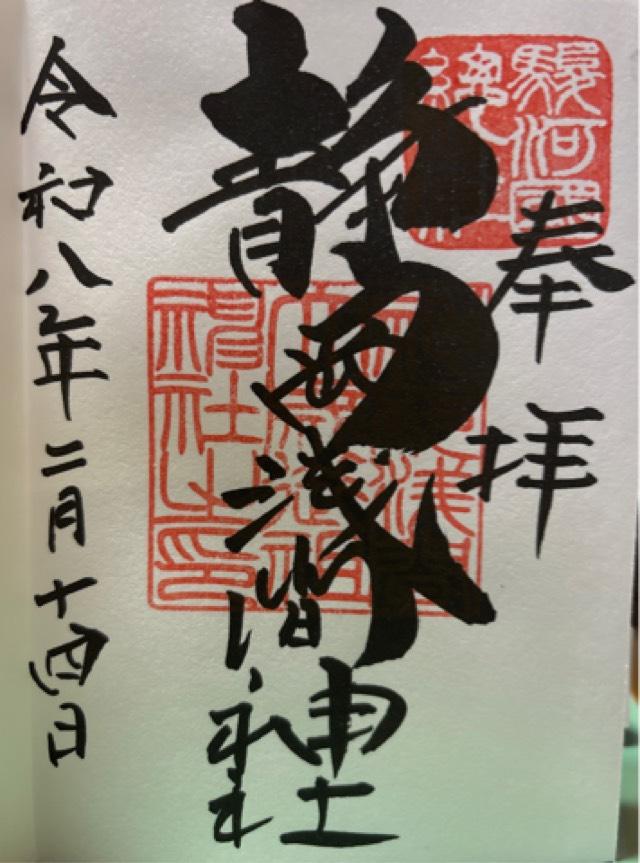 奉拝
駿河國
總社
静岡浅間神社
神社之印
令和八年二月十四日